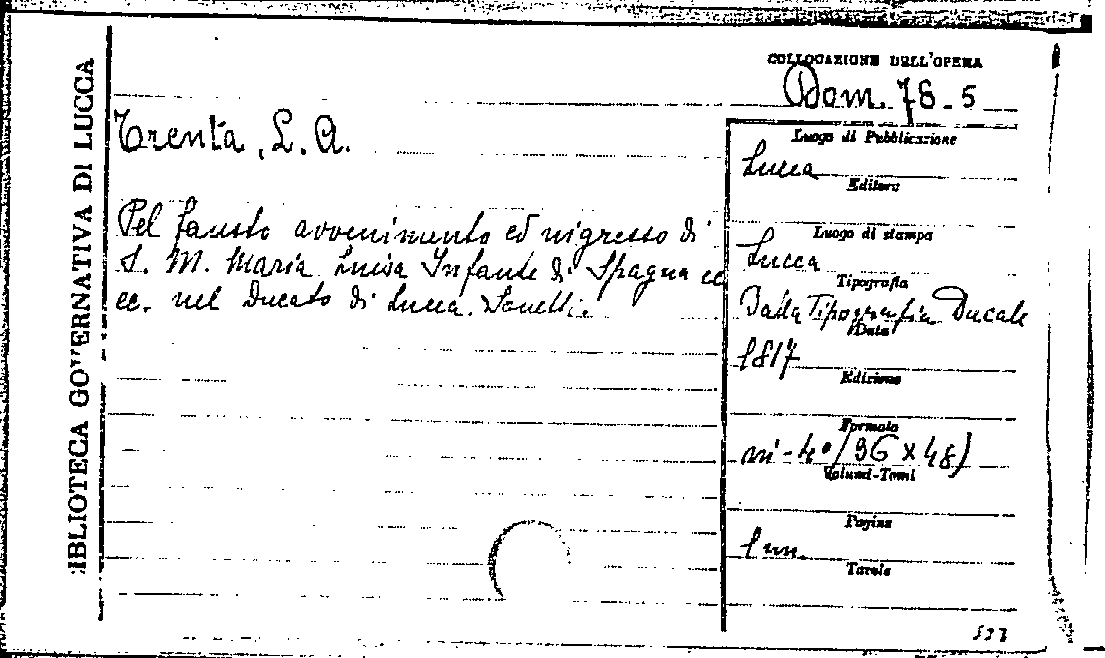 BIBLIOTECA GOVERNATIVA DI LUCCA
COLLOCAZIONE DELL'OPERA
Dom. 78-5
Trenta, L. A.
Pel fausto avvenimento ed ingresso di
S. M. Maria Luisa Infante di Spagna ec
ec. nel Ducato di Lucca. Sonetti.
Luogo di Pubblicazione
Lucca
Editore
Luogo di stampa
Lucca
Tipografia
Dalla Tipografia Ducale
Data
1817
Edizione
Formato
in-4° (36 x 48)
Volumi-Tomi
Pagine
1 nn.
Tavole